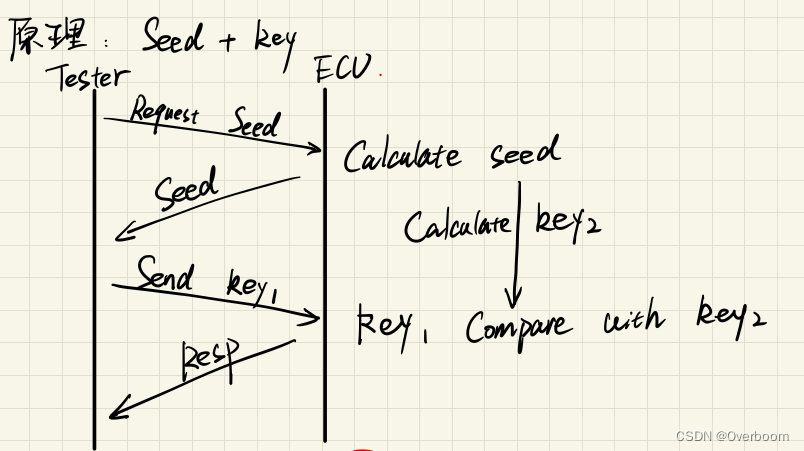 原理: Seed + key
Tester
ECU.
Request Seed
Calculate seed
Seed
Calculate key2
Send key1
key1 Compare with key2
Resp
CSDN @Overboom